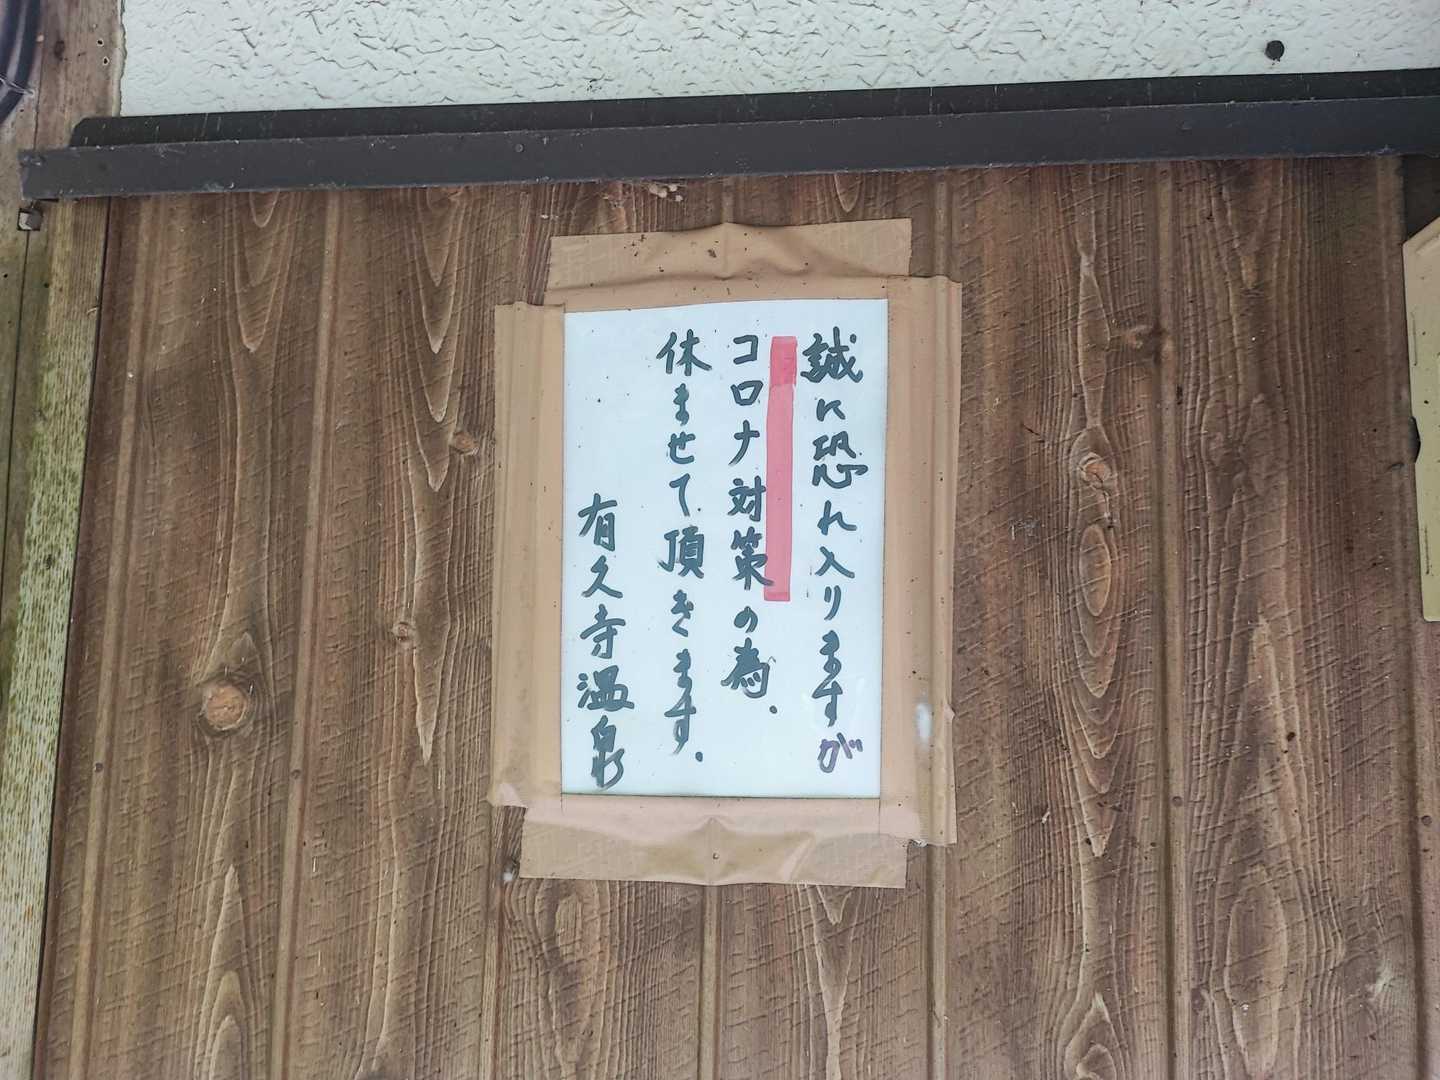 誠に恐れ入りますが
コロナ対策の為.
休ませて頂きます.
有久寺温泉